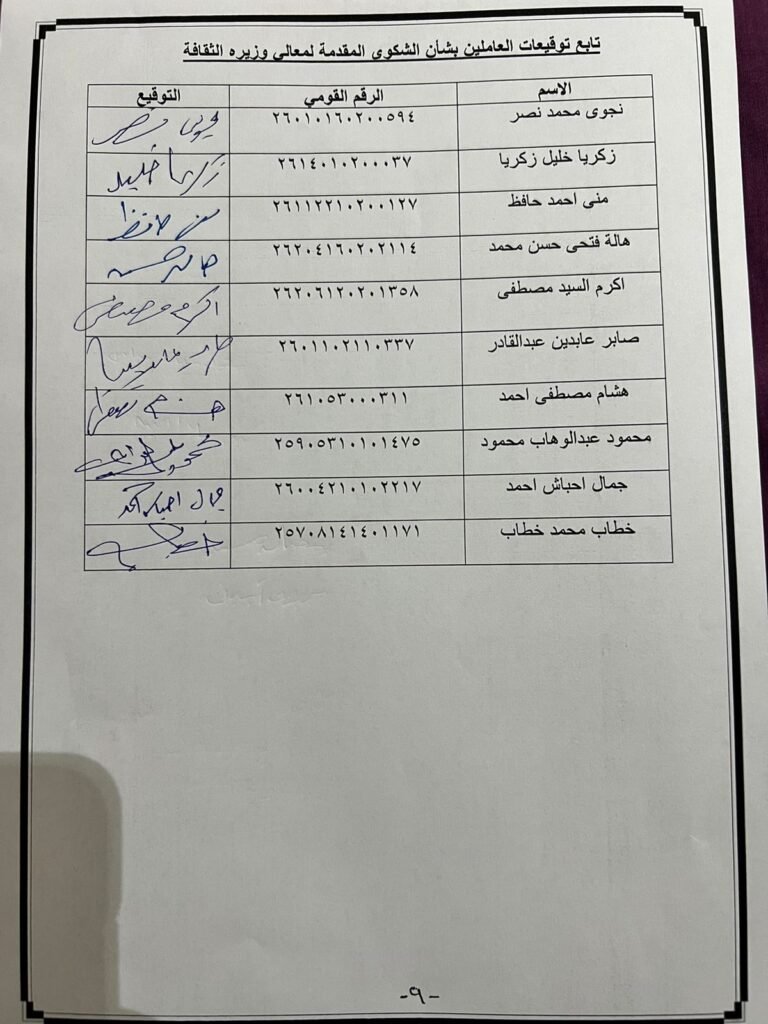 تابع توقيعات العاملين بشأن الشكوى المقدمة لمعالي وزيره الثقافة
الاسم الرقم القومي التوقيع
نجوى محمد نصر ٢٦٠١٠١٦٠٢٠٠٥٩٤ نجوى نصر
زكريا خليل زكريا ٢٦١٤٠١٠٢٠٠٠٣٧ زكريا خليل
منى احمد حافظ ٢٦١١٢٢١٠٢٠٠١٢٧ منى حافظ
هالة فتحى حسن محمد ٢٦٢٠٤١٦٠٢٠٢١١٤
اكرم السيد مصطفى ٢٦٢٠٦١٢٠٢٠١٣٥٨ اكرم مصطفى
صابر عابدين عبدالقادر ٢٦٠١١٠٢١١٠٣٣٧
هشام مصطفى احمد ٢٦١٠٥٣٠٠٠٣١١
محمود عبدالوهاب محمود ٢٥٩٠٥٣١٠١٠١٤٧٥
جمال احباش احمد ٢٦٠٠٤٢١٠١٠٢٢١٧ جمال احباش احمد
خطاب محمد خطاب ٢٥٧٠٨١٤١٤٠١١٧١
-٩-